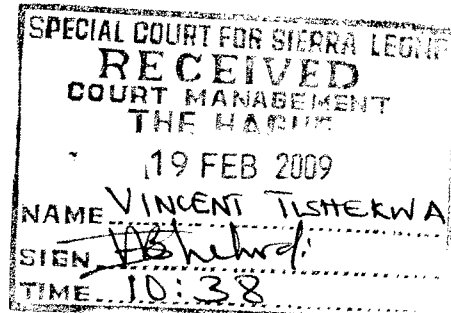 SPECIAL COURT FOR SIERRA LEONE
RECEIVED
COURT MANAGEMENT
THE HAGUE
19 FEB 2009
NAME VINCENT TISHEKWA
SIGN
TIME 10:38